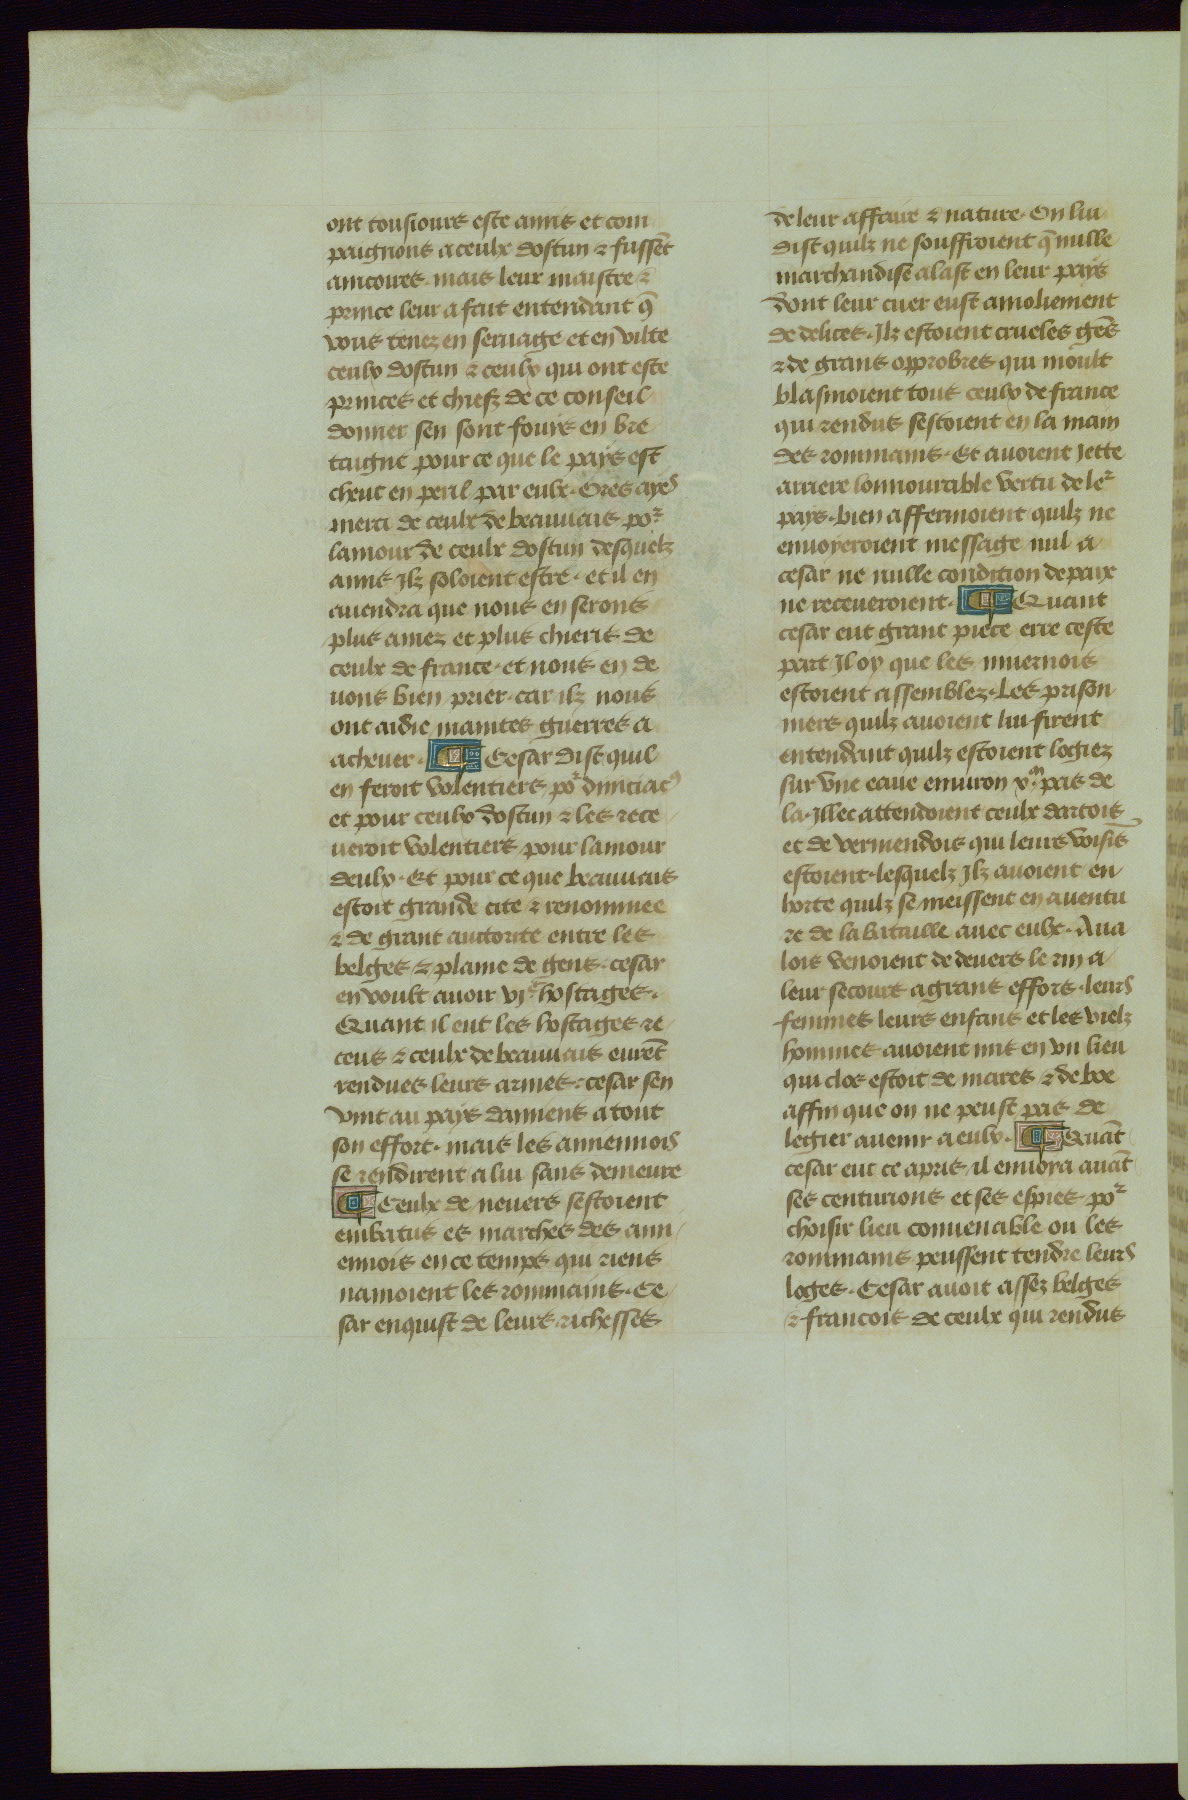 ont tousiours este amis et com
paignons a ceulx dostun & fussēt
ancores. mais leur maistre &
prince leur a fait entendant q̄
vous tenez en seruage et en vilte
ceulx dostun & ceulx qui ont este
princes et chiefz de ce conseil
donner sen sont fouis en bre
taigne pour ce que le pays est
cheut en peril par eulx. Ores ayes
merci de ceulx de beauuais por
lamour de ceulx dostun desquelz
amis Ilz soloient estre. et il en
auendra que nous en serons
plus amez et plus chieris de
ceulx de france. et nous en de
uons bien prier. car ilz nous
ont aidie maintes guerres a
acheuer. ¶ Cesar dist quil
en feroit volentiers por diuiciac9
et pour ceulx dostun & les rece
ueroit volentiers pour lamour
deulx. Et pour ce que beauuais
estoit grande cite & renommee
& de grant auctorite entre les
belges & plaine de gens. cesar
en voult auoir vjc hostages.
Quant il eut les hostages re
ceus & ceulx de beauuais eurēt
rendues leurs armes. cesar sen
vint au pays damiens a tout
son effort. mais les amiennois
se rendirent a lui sans demeure
¶ Ceulx de neuers sestoient
embatus es marches des ami
ennois en ce temps qui riens
namoient les rommains. Ce
sar enquist de leurs richesses
de leur affaire & nature. On lui
dist quilz ne souffroient q̄ nulle
marchandise alast en leur pays
dont leur cuer eust amoliement
de delices. Ilz estoient crueles gēs
& de grans opprobres qui moult
blasmoient tous ceulx de france
qui rendus sestoient en la main
des rommains. Et auoient Jette
arriere lonnourable vertu de ler
pays. bien affermoient quilz ne
enuoyeroient message nul a
cesar ne nulle condition de paix
ne receueroient. ¶ Quant
cesar eut grant piece erre ceste
part Il oy que les niuernois
estoient assemblez. Les prison
niers quilz auoient lui firent
entendant quilz estoient logiez
sur vne eaue enuiron x.m pas de
la. Illec attendoient ceulx dartois
et de vermendois qui leurs voisīs
estoient. lesquelz Ilz auoient en
horte quilz se meissent en auentu
re de la bataille auec eulx. Aua
lois venoient de deuers le rin a
leur secours a grans effors. leurs
femmes leurs enfans et les vielz
hommes auoient mis en vn lieu
qui clos estoit de mares & de boe
affin que on ne peust pas de
legier auenir a eulx. ¶ Quāt
cesar eut ce apris. il enuoya auāt
ses centurions et ses espies por
choisir lieu conuenable ou les
rommains peussent tendre leurs
loges. Cesar auoit assez belges
& francois de ceulx qui rendus